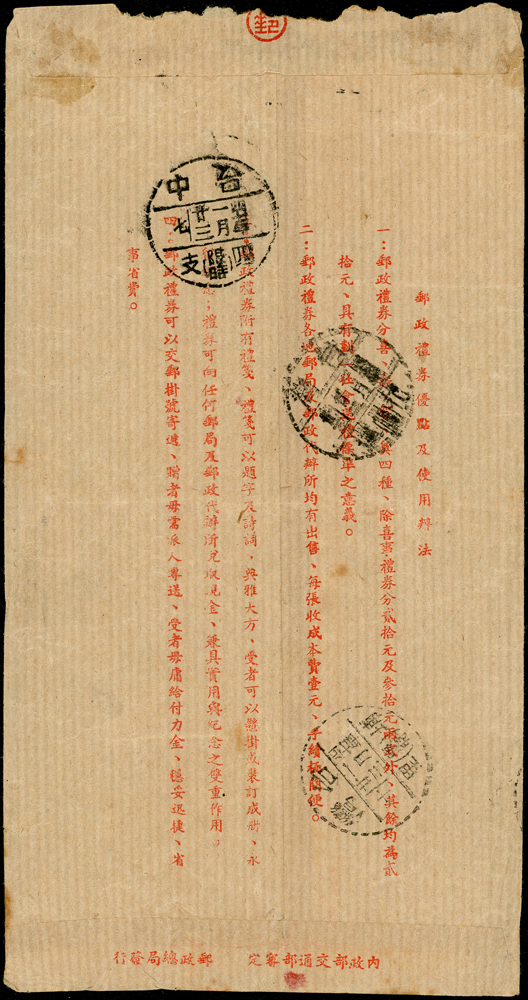 郵
郵政禮券優點及使用辦法
一：郵政禮券分喜、奠四種、除喜事禮券分貳拾元及參拾元外其餘均為貳
拾元、具有劃一社會標準之意義。
二：郵政禮券各地郵局及郵政代辦所均有出售、每張收成本費壹元、手續極簡便。
政禮券附有禮箋、禮箋可以題字及詩詞、典雅大方、受者可以懸掛或裝訂成册、永
念：禮券可向任何郵局及郵政代辦所兌取現金、兼具實用與紀念之雙重作用。
四：郵政禮券可以交郵掛號寄遞、贈者毋需派人專送、受者毋庸給付力金、穩妥迅捷、省
事省費。
台中
一月
廿三
七
四
支
內政部交通部審定 郵政總局發行